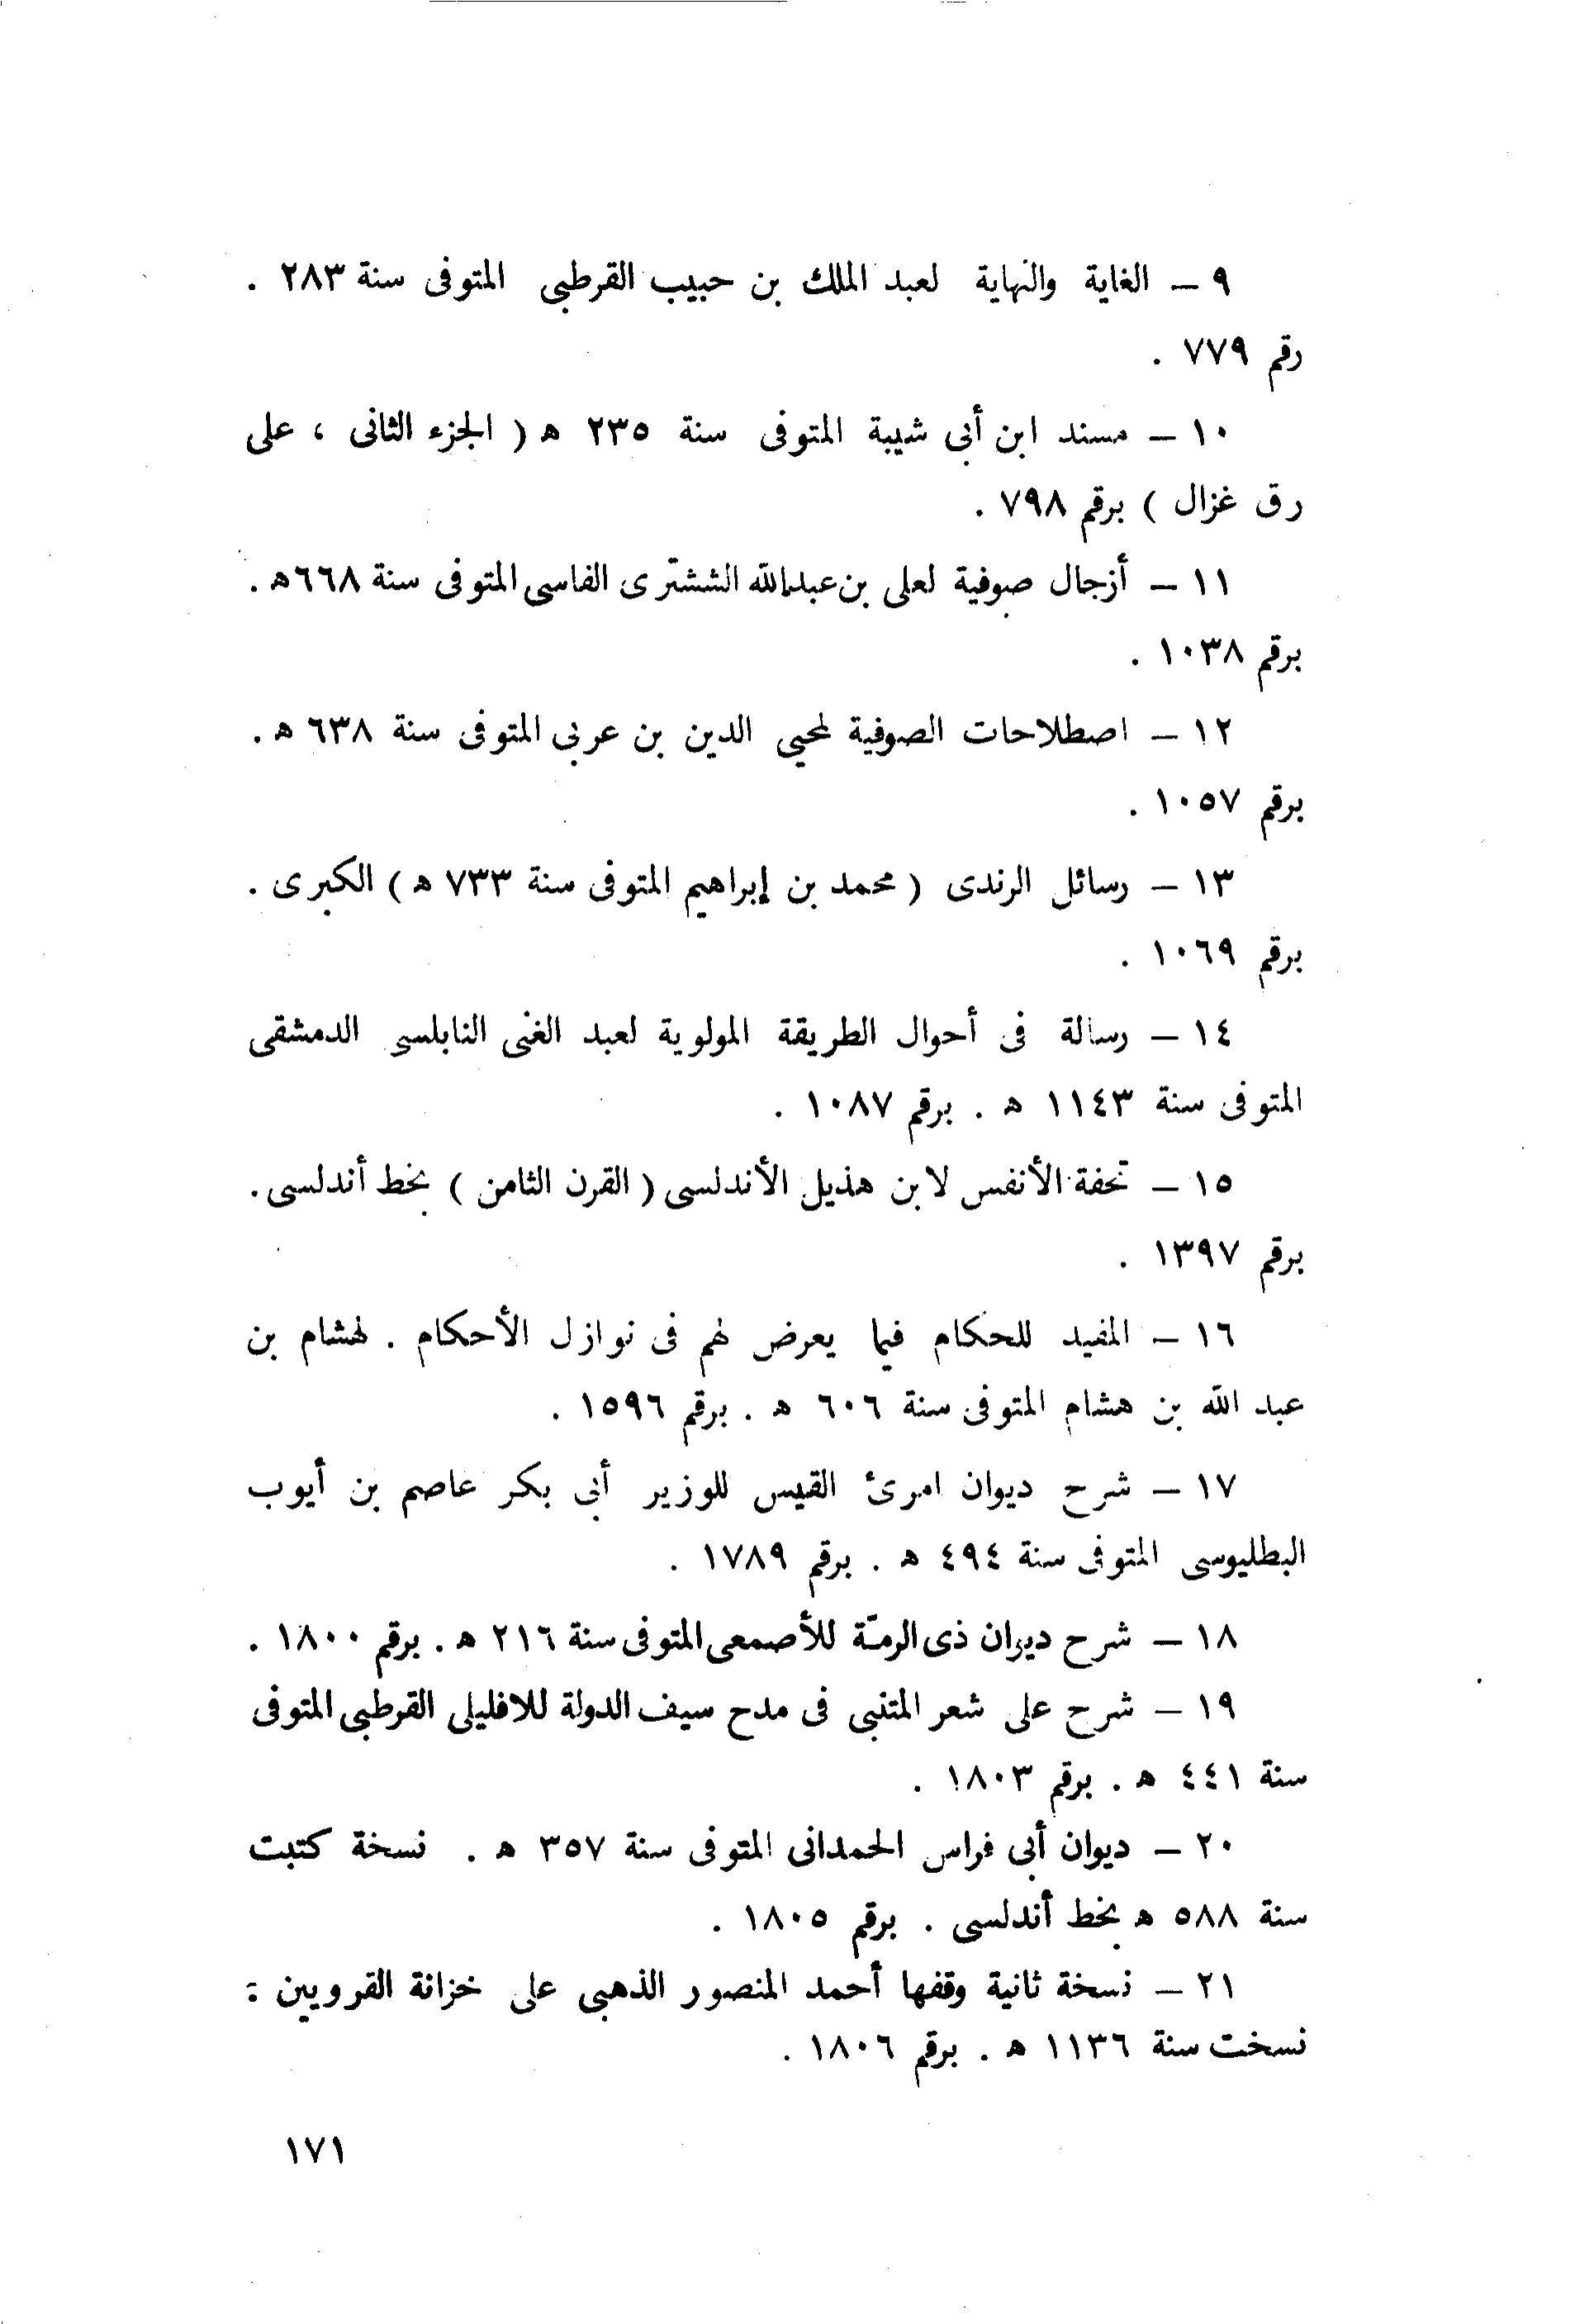 ٩ — الغاية والنهاية لعبد الملك بن حبيب القرطبى المتوفى سنة ٢٨٣ .
رقم ٧٧٩ .
١٠ — مسند ابن أبى شيبة المتوفى سنة ٢٣٥ ه ( الجزء الثانى ، على
رق غزال ) برقم ٧٩٨ .
١١ — أزجال صوفية لعلى بن عبدالله الششترى الفاسى المتوفى سنة ٦٦٨ه .
برقم ١٠٣٨ .
١٢ — اصطلاحات الصوفية لمحيى الدين بن عربى المتوفى سنة ٦٣٨ ه .
برقم ١٠٥٧ .
١٣ — رسائل الرندى ( محمد بن إبراهيم المتوفى سنة ٧٣٣ ه ) الكبرى .
برقم ١٠٦٩ .
١٤ — رسالة فى أحوال الطريقة المولوية لعبد الغنى النابلسى الدمشقى
المتوفى سنة ١١٤٣ ه . برقم ١٠٨٧ .
١٥ — تحفة الأنفس لابن هذيل الأندلسى ( القرن الثامن ) بخط أندلسى .
برقم ١٣٩٧ .
١٦ — المفيد للحكام فيما يعرض لهم فى نوازل الأحكام . لهشام بن
عبد الله بن هشام المتوفى سنة ٦٠٦ ه . برقم ١٥٩٦ .
١٧ — شرح ديوان امرئ القيس للوزير أبى بكر عاصم بن أيوب
البطليوسى المتوفى سنة ٤٩٤ ه . برقم ١٧٨٩ .
١٨ — شرح ديوان ذى الرمّة للأصمعى المتوفى سنة ٢١٦ ه . برقم ١٨٠٠ .
١٩ — شرح على شعر المتنبى فى مدح سيف الدولة للافليلى القرطبى المتوفى
سنة ٤٤١ ه . برقم ١٨٠٣ .
٢٠ — ديوان أبى فراس الحمدانى المتوفى سنة ٣٥٧ ه . نسخة كتبت
سنة ٥٨٨ ه بخط أندلسى . برقم ١٨٠٥ .
٢١ — نسخة ثانية وقفها أحمد المنصور الذهبى على خزانة القرويين :
نسخت سنة ١١٣٦ ه . برقم ١٨٠٦ .
١٧١